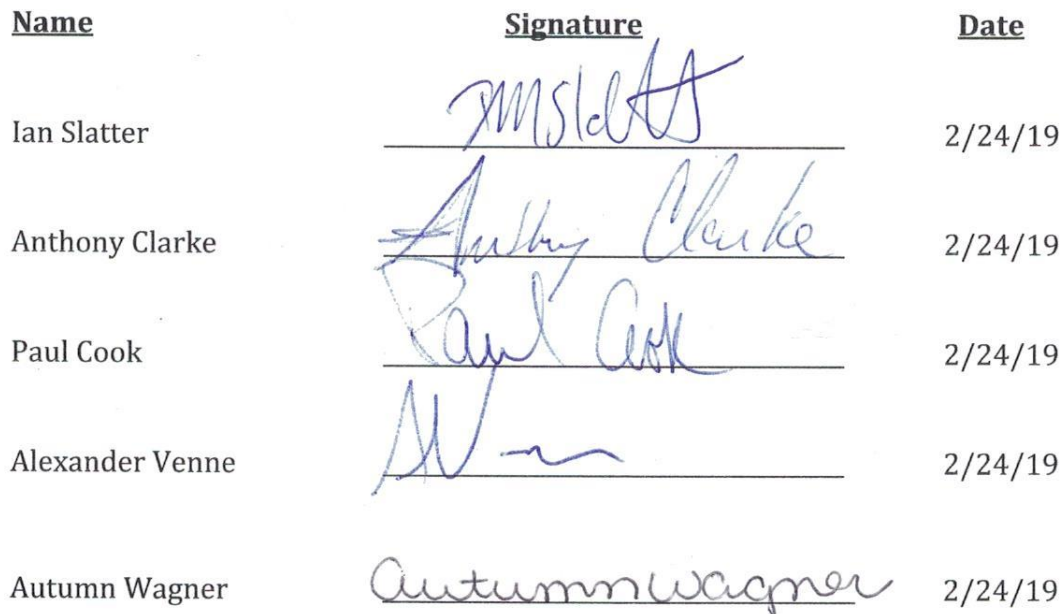 Name Signature Date
Ian Slatter IMSlatter 2/24/19
Anthony Clarke Anthony Clarke 2/24/19
Paul Cook Paul Cook 2/24/19
Alexander Venne 2/24/19
Autumn Wagner autumn wagner 2/24/19